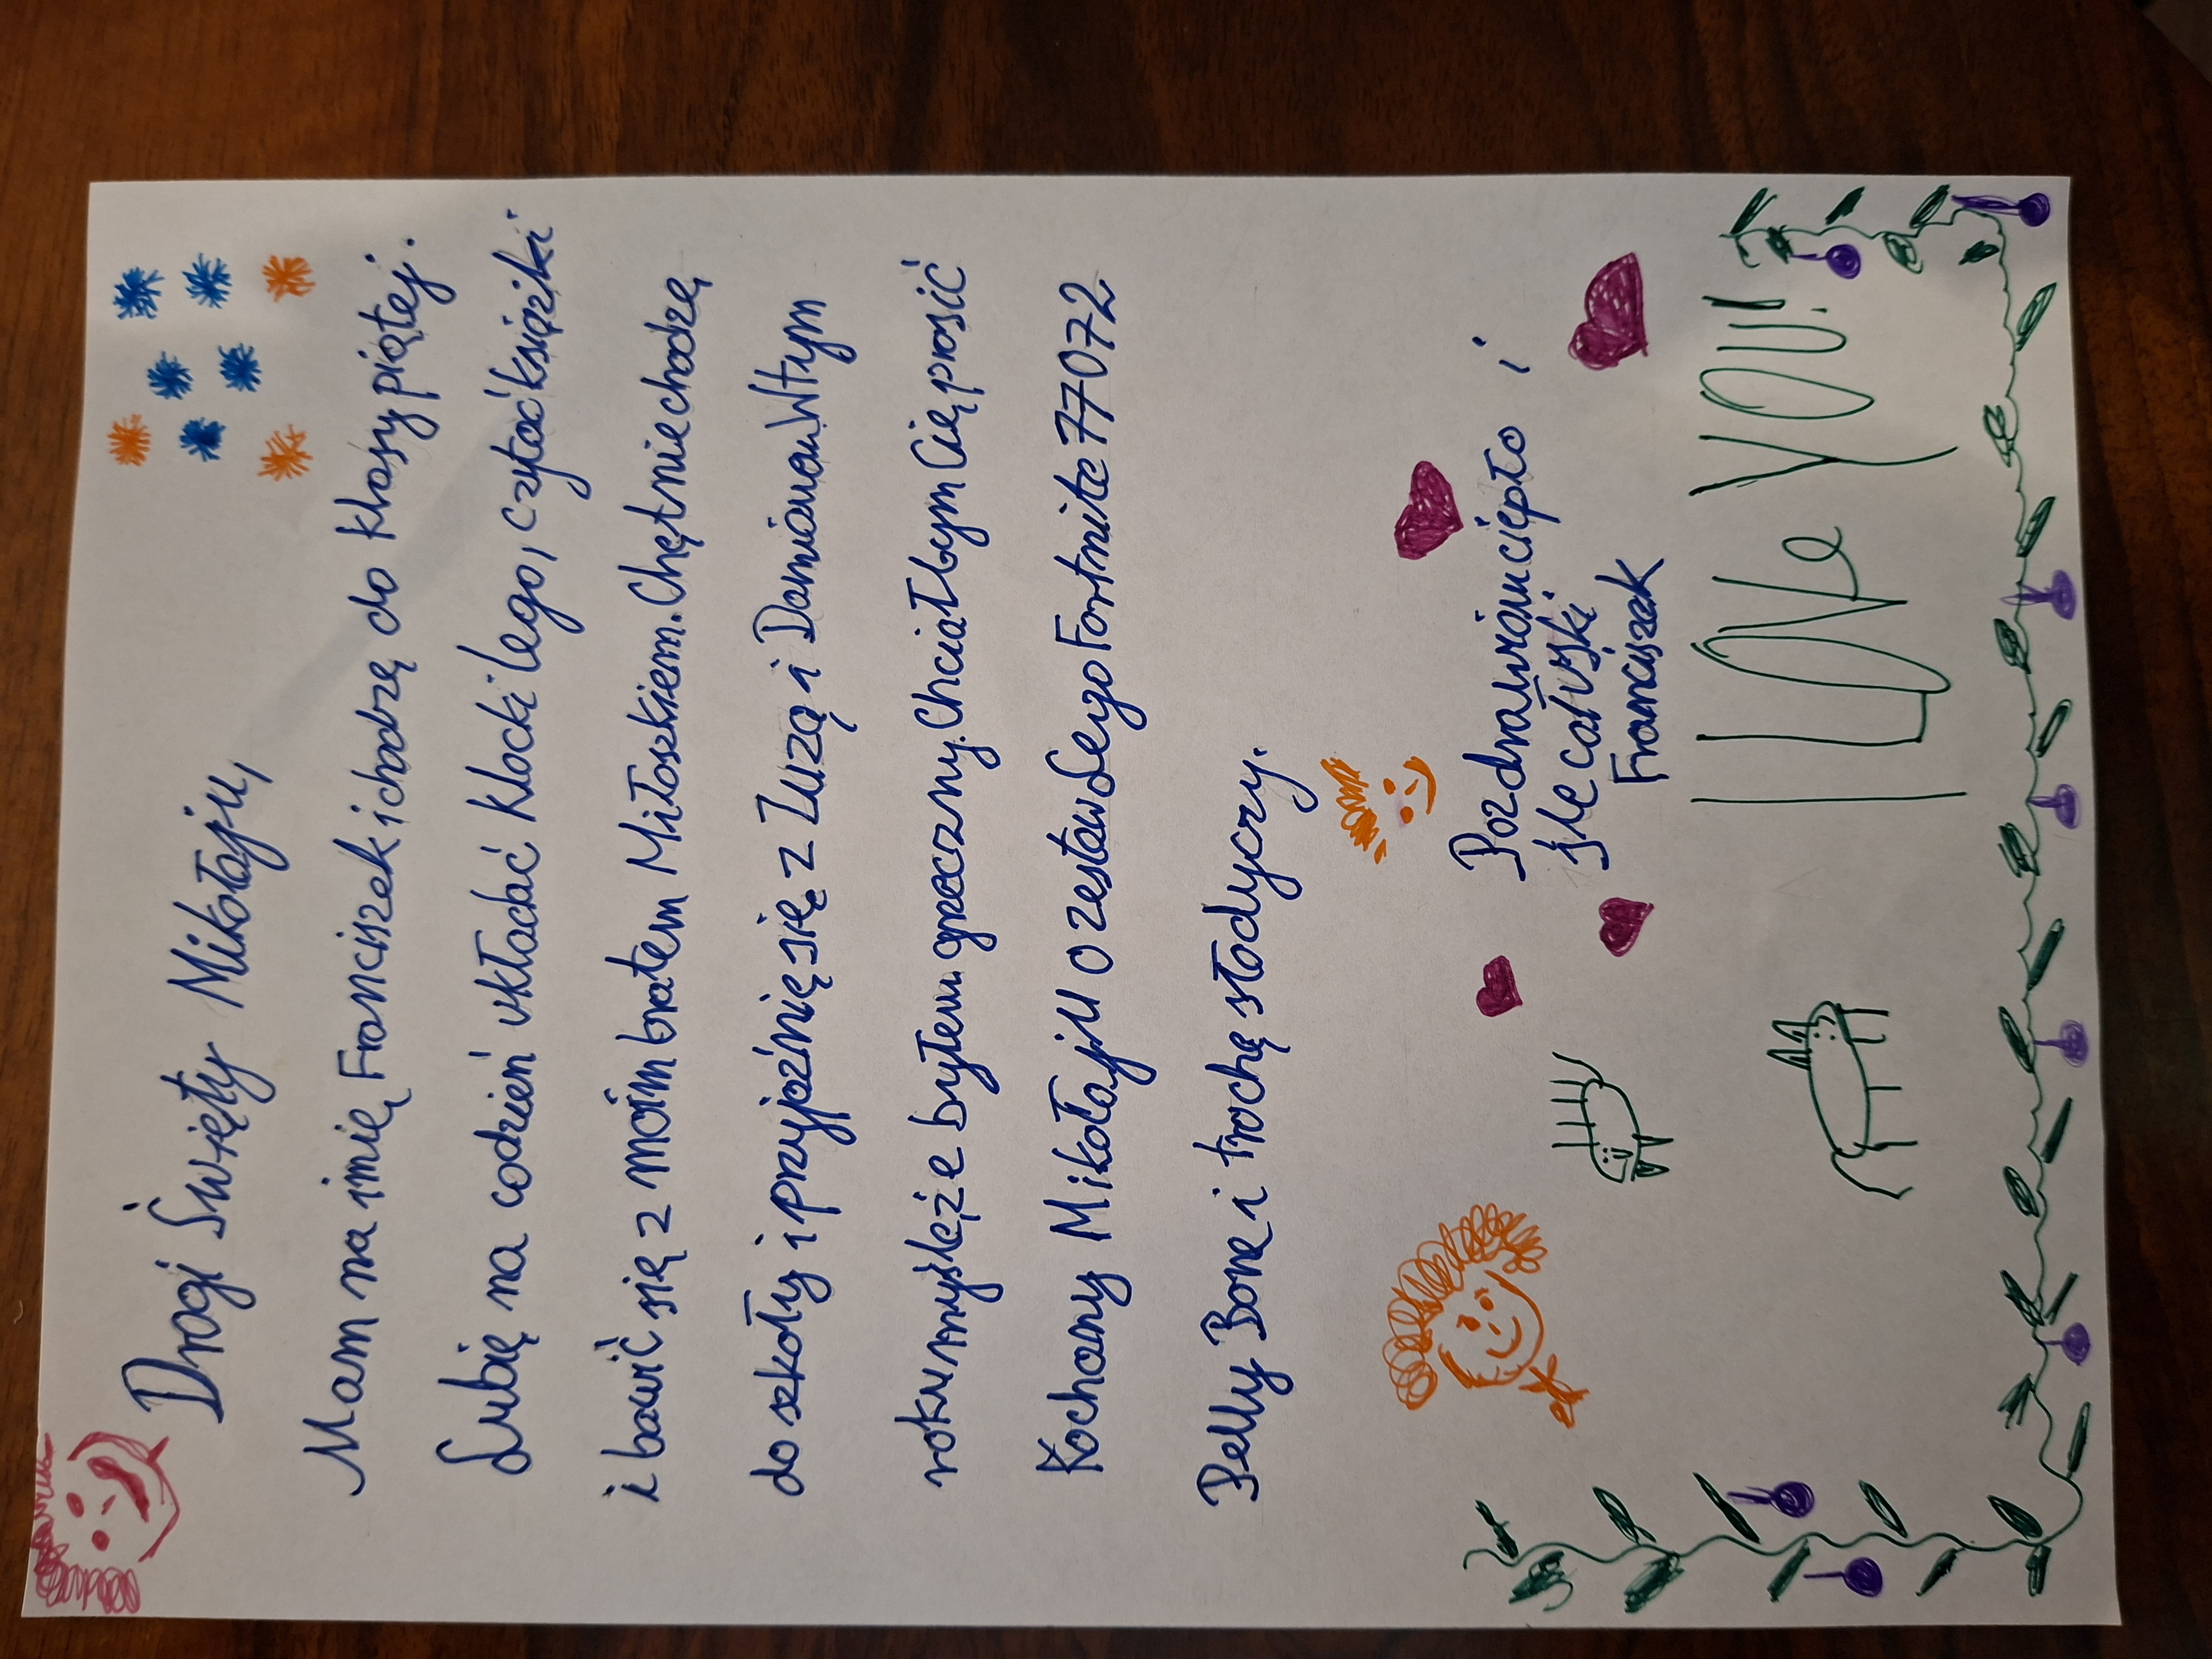 Drogi Święty Mikołaju,
Mam na imię Franciszek i chodzę do klasy piątej.
Lubię na codzień układać klocki lego, czytać książki
i bawić się z moim bratem Miłoszkiem. Chętnie chodzę
do szkoły i przyjaźnię się z Zuzą i Damianem. W tym
roku myślę że byłem grzeczny. Chciałbym Cię prosić
Kochany Mikołaju o zestaw Lego Fortnite 77072
Pelly Bone i trochę słodyczy.
Pozdrawiam ciepło i
śle całuski
Franciszek
I LOVe YOU!